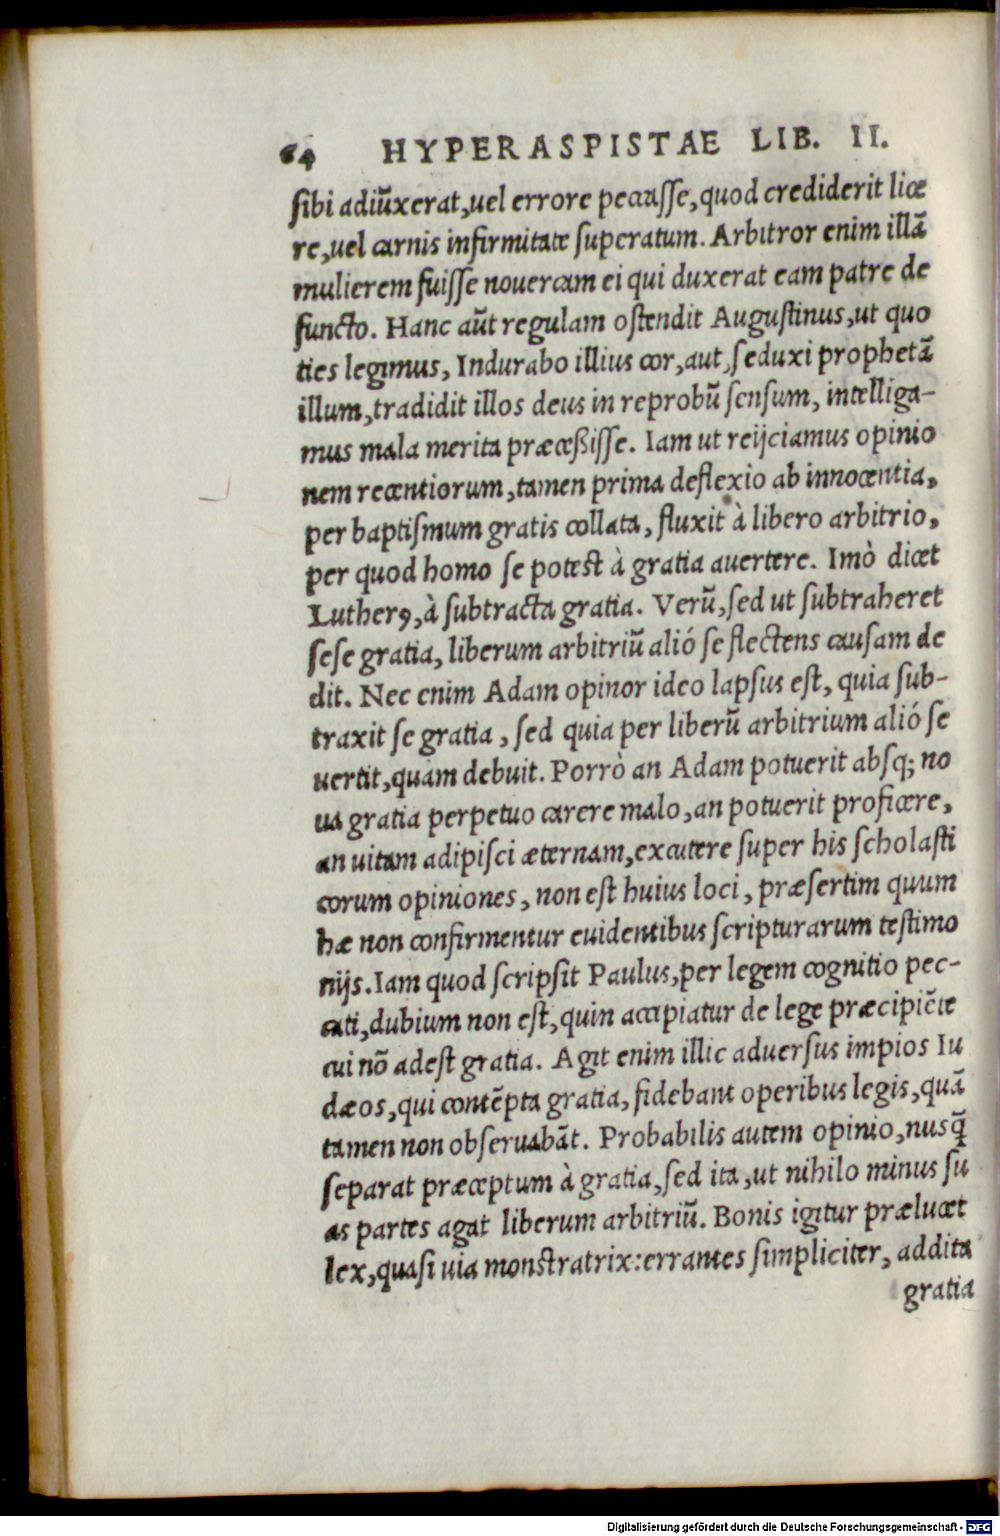 64 HYPERASPISTAE LIB. II.
ſibi adiūxerat,uel errore peccaſſe,quod crediderit lice
re,uel carnis infirmitate ſuperatum. Arbitror enim illā
mulierem fuiſſe nouercam ei qui duxerat eam patre de
functo. Hanc aūt regulam oſtendit Auguſtinus,ut quo
ties legimus, Indurabo illius cor,aut,ſeduxi prophetā
illum,tradidit illos deus in reprobū ſenſum, intelliga-
mus mala merita præceßiſſe. Iam ut reijciamus opinio
nem recentiorum,tamen prima deflexio ab innocentia,
per baptiſmum gratis collata, fluxit à libero arbitrio,
per quod homo ſe potest à gratia auertere. Imò dicet
Lutherꝰ,à ſubtracta gratia. Verū,ſed ut ſubtraheret
ſeſe gratia, liberum arbitriū alió ſe flectens cauſam de
dit. Nec enim Adam opinor ideo lapſus eſt, quia ſub-
traxit ſe gratia, ſed quia per liberū arbitrium alió ſe
uertit,quam debuit. Porrò an Adam potuerit abſq; no
ua gratia perpetuo carere malo,an potuerit proficere,
an uitam adipiſci æternam,excutere ſuper his ſcholaſti
corum opiniones, non eſt huius loci, præſertim quum
hæ non confirmentur euidentibus ſcripturarum teſtimo
nijs.Iam quod ſcripſit Paulus,per legem cognitio pec-
cati,dubium non eſt,quin accipiatur de lege præcipiēte
cui nō adeſt gratia. Agit enim illic aduerſus impios Iu
dæos,qui contēpta gratia, fidebant operibus legis,quā
tamen non obſeruabāt. Probabilis autem opinio,nusq̄
ſeparat præceptum à gratia,ſed ita,ut nihilo minus ſu
as partes agat liberum arbitriū. Bonis igitur prælucet
lex,quaſi uia monstratrix:errantes ſimpliciter, addita
gratia
Digitalisierung gefördert durch die Deutsche Forschungsgemeinschaft - DFG